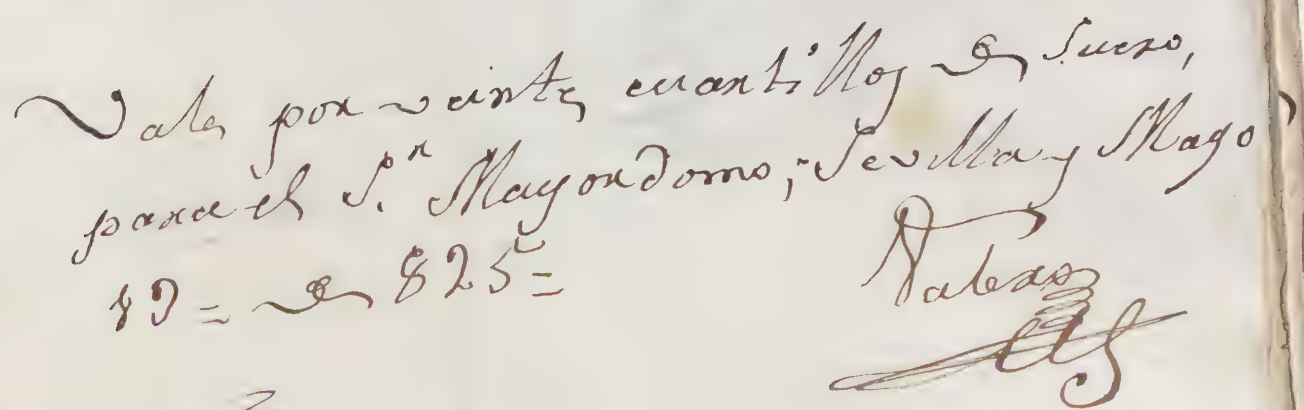 Vale por veinte cuartillos de Suero,
para el S.r Mayordomo; Sevilla y Mayo
19 = de 825 =